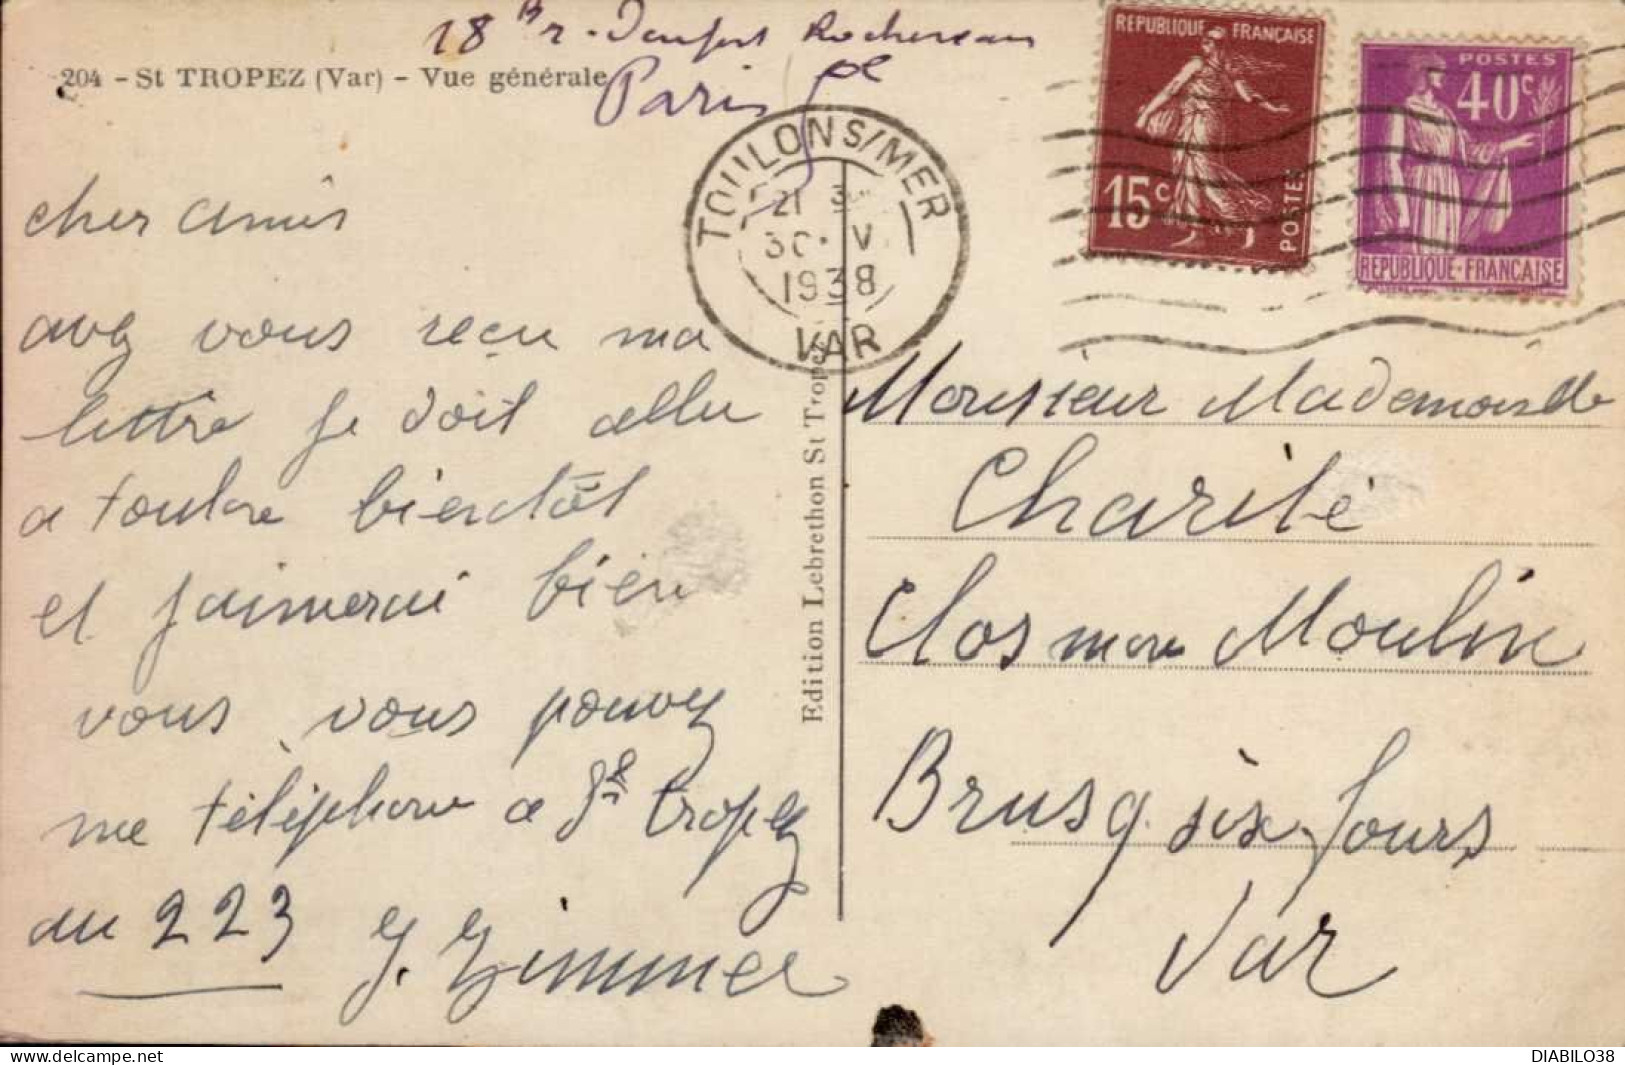 18 Br. Denfert Rochereau
Paris 5e
204 - St TROPEZ (Var) - Vue générale
REPUBLIQUE FRANÇAISE
15c
POSTES
POSTES
40c
REPUBLIQUE FRANÇAISE
TOULON S/MER
21
30 V
1938
VAR
cher amis
avez vous reçu ma
lettre je doit aller
a toulon bientôt
et j'aimerai bien
vous vous pouvez
me téléphone a St tropez
au 223
Edition Lebrethon St Tropez
Monsieur Mademoiselle
Charité
Clos mon Moulin
Brusq. six fours
Var
DIABILO38